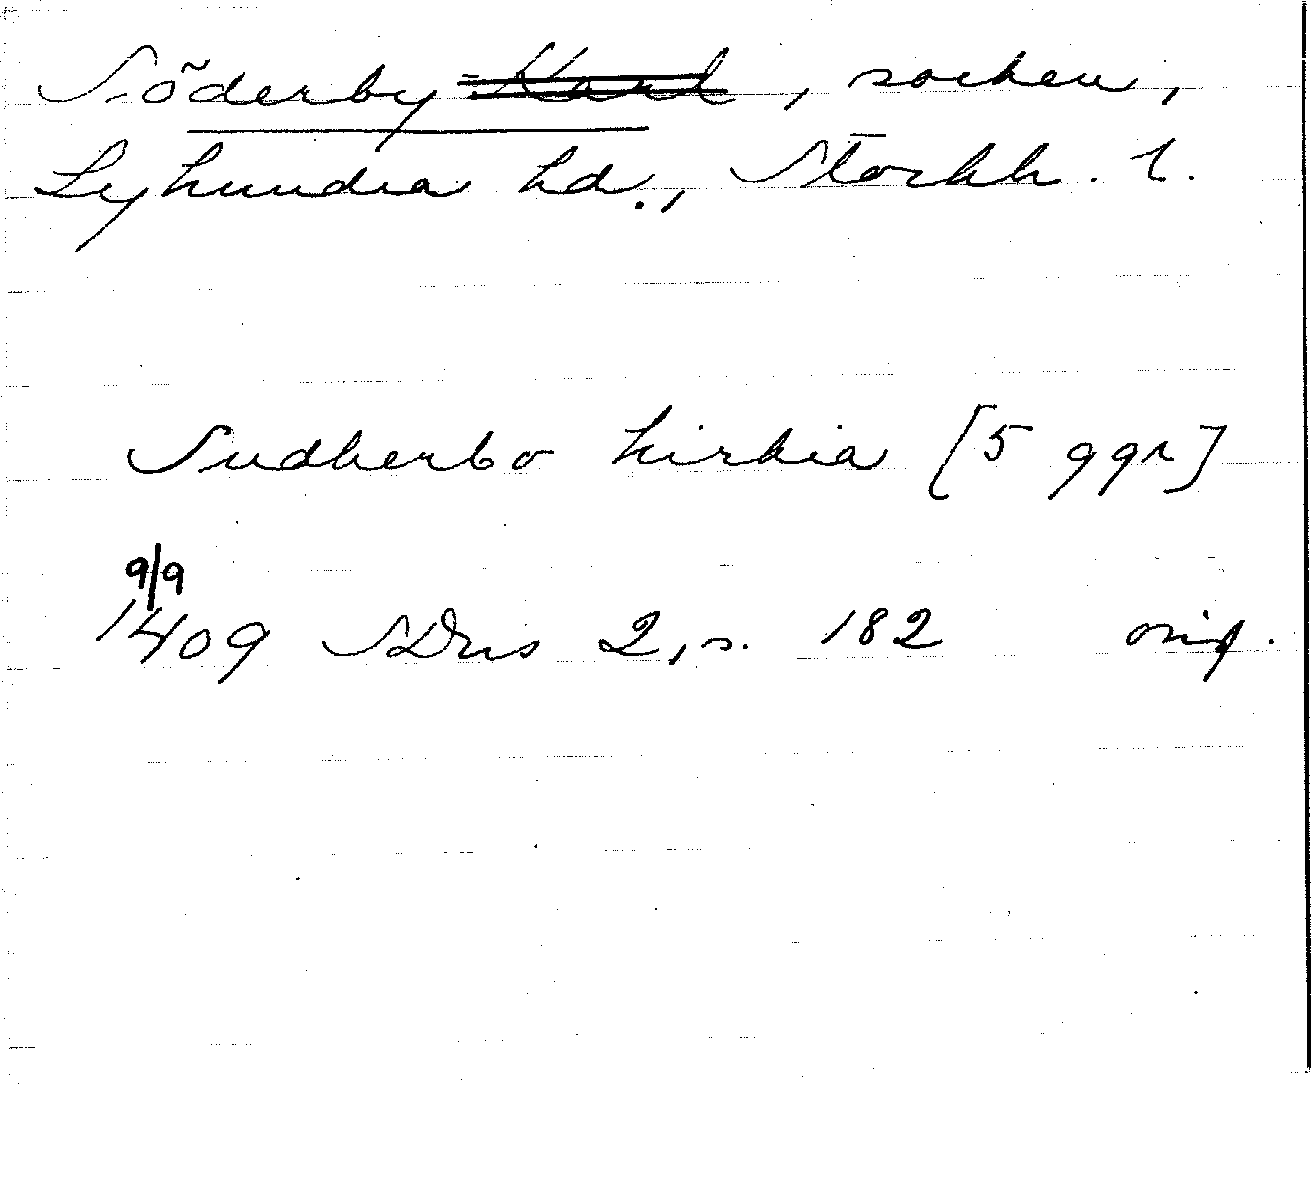 Söderby-Karl, socken,
Lyhundra hd., Stockh. l.
Sudherbo kirkia [5 ggr]
9/9
1409 SDns 2, s. 182 orig.